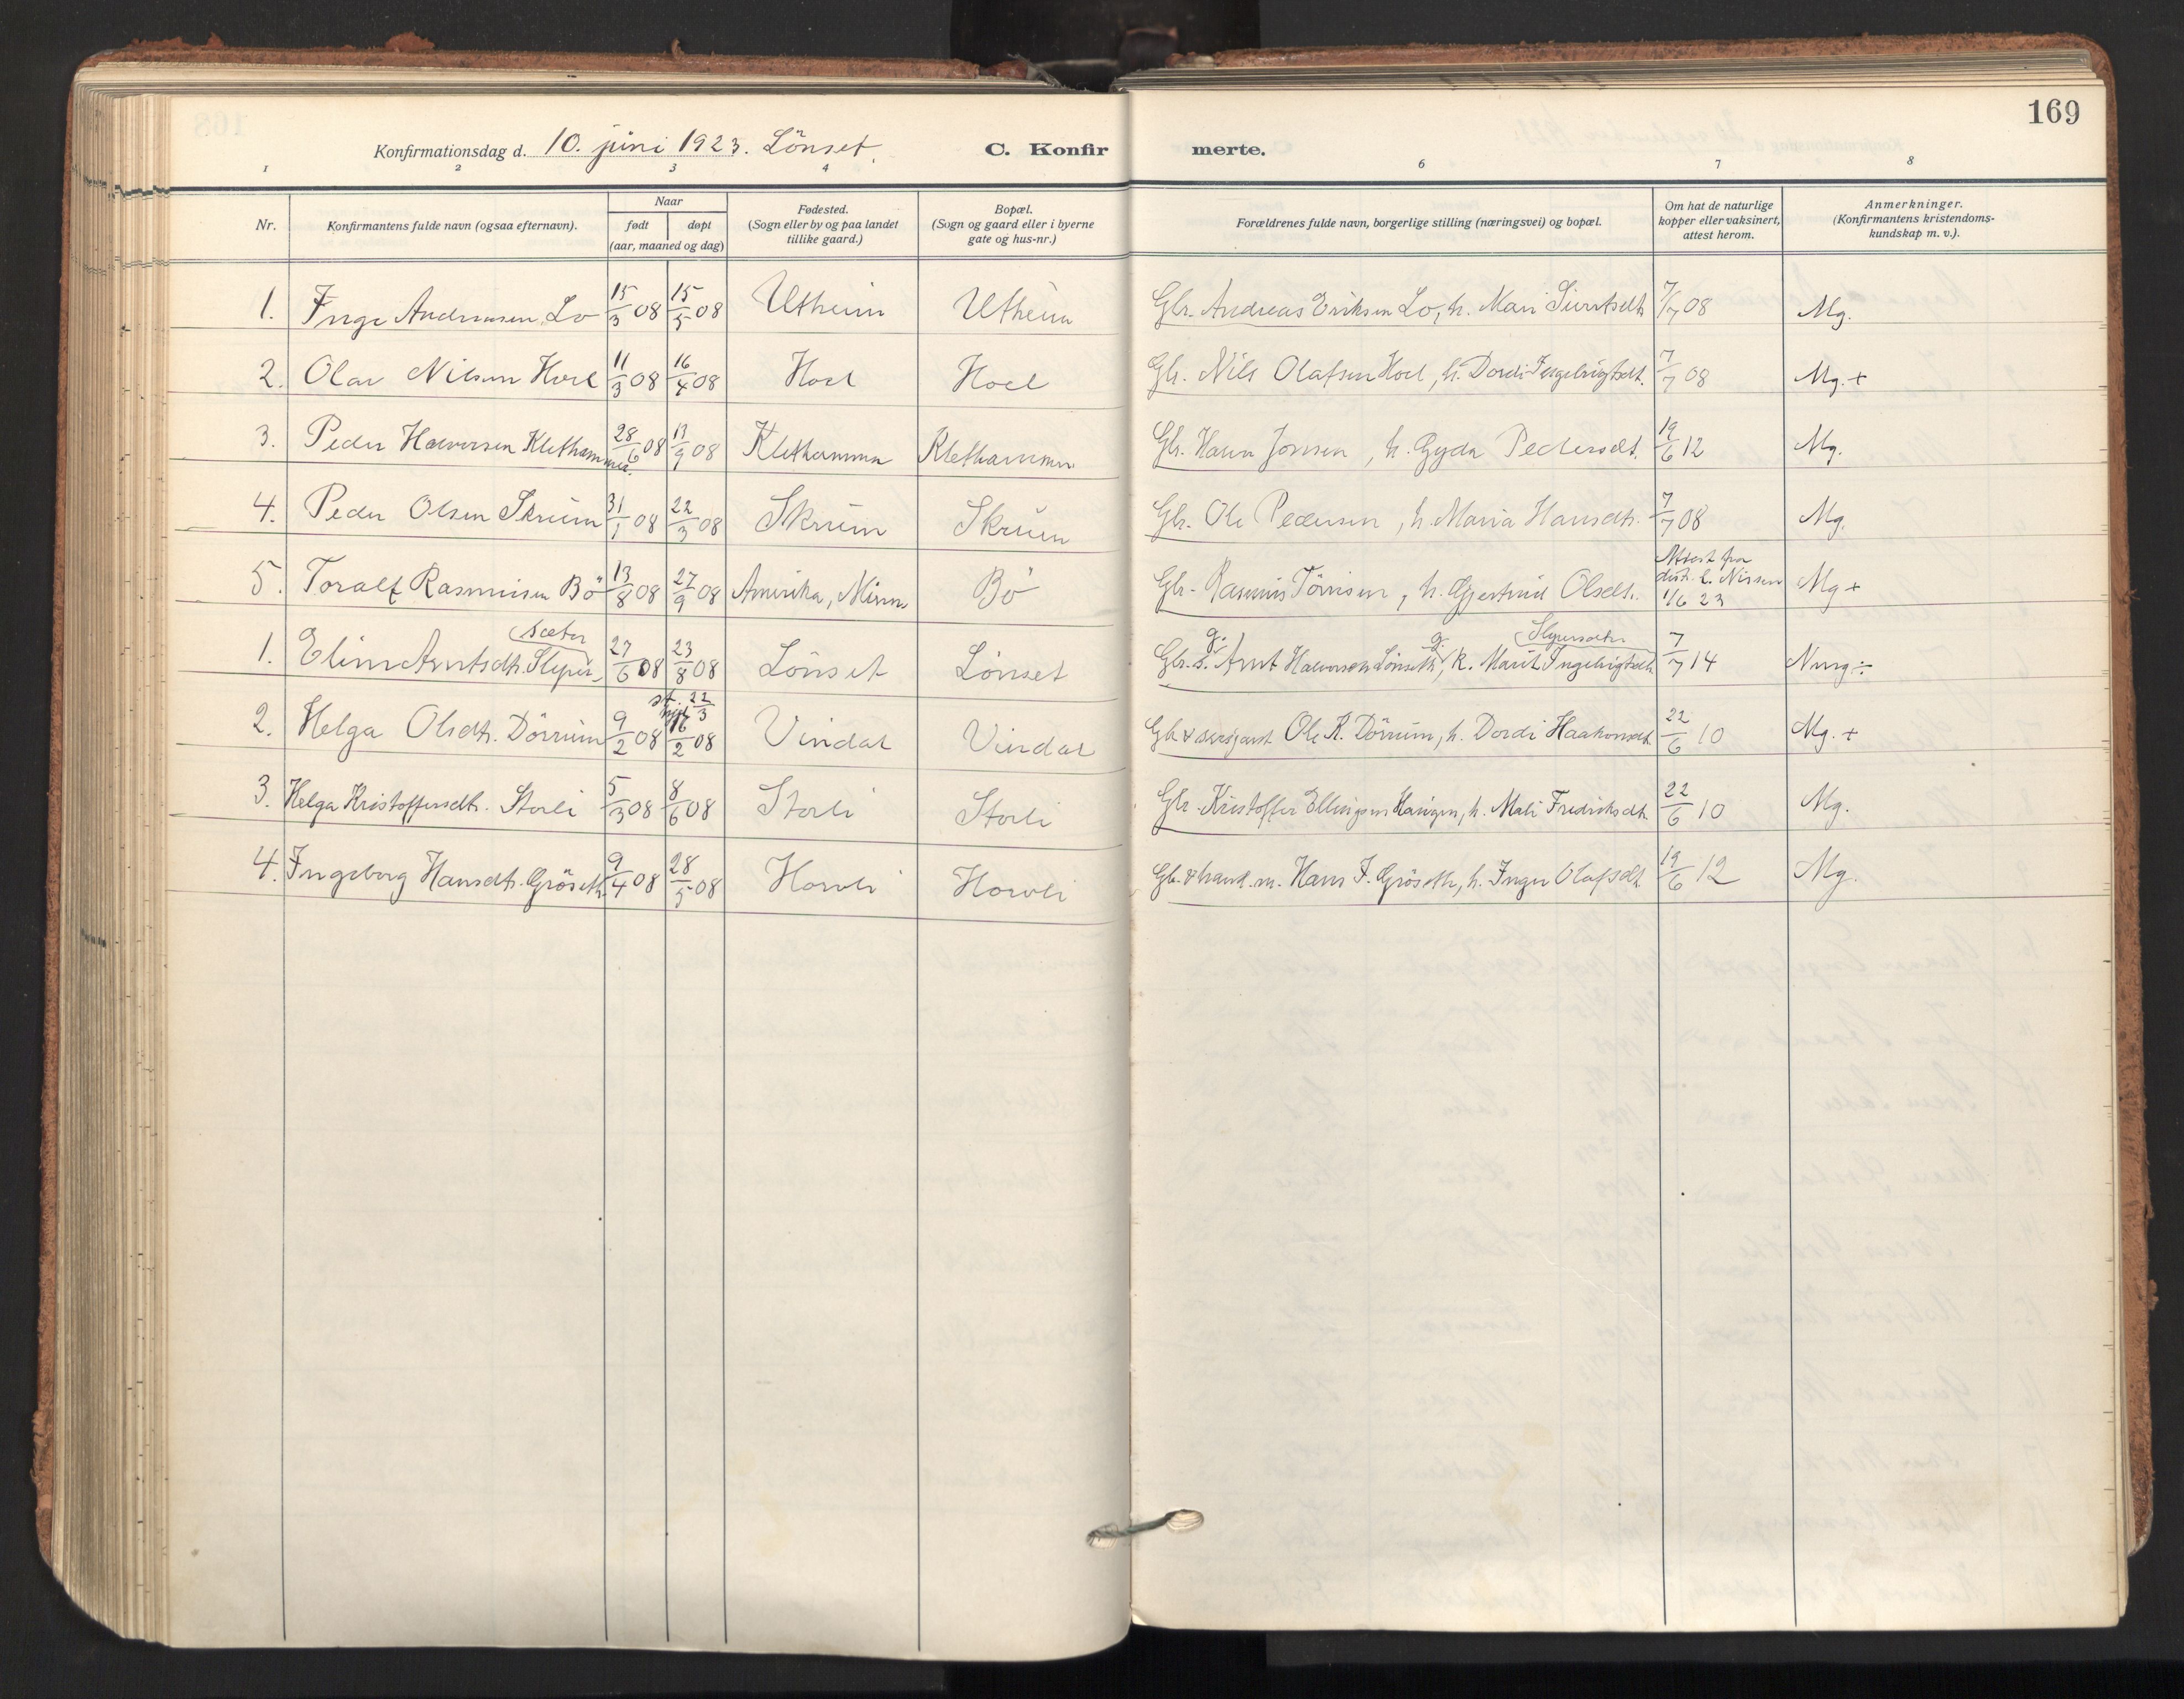 169
Konfirmationsdag d. 10. juni 1923. Lönset. C. Konfirmerte.
1 2 3 4 6 7 8
Nr. Konfirmantens fulde navn (ogsaa efternavn). Naar født døpt (aar, maaned og dag) Fødested. (Sogn eller by og paa landet tillike gaard.) Bopæl. (Sogn og gaard eller i byerne gate og hus-nr.) Forældrenes fulde navn, borgerlige stilling (næringsvei) og bopæl. Om hat de naturlige kopper eller vaksinert, attest herom. Anmerkninger. (Konfirmantens kristendomskundskap m. v.).
1. Inge Andreasen Lo 15/3 08 15/5 08 Utheim Utheim Gbr. Andreas Eriksen Lo, h. Mari Sivertsdtr. 7/7 08 Mg.
2. Olav Nilsen Hoel 11/3 08 16/4 08 Hoel Hoel Gbr. Nils Olafsen Hoel, h. Dordi Ingebrigtsdt. 7/7 08 Mg. +
3. Peder Halvorsen Klethammer. 28/6 08 13/9 08 Klethammer Klethammer Gbr. Jonsen, h. Gyda Pedersdt. 19/6 12 Mg.
4. Peder Olsen Skrum 31/1 08 22/3 08 Skrum Skrum Gbr. Ole Pedersen, h. Maria Hansdtr. 7/7 08 Mg.
5. Toralf Rasmusen Bö 13/8 08 27/9 08 Amerika, Minn Bö Gbr. Rasmus Törrisen, h. Gjertrud Olsdtr. 7/6 23 Attest fra distr. l. Nissen 1/6 23 Mg +
1. Elen Arntsdtr. Slipersæter 27/6 08 23/8 08 Lönset Lönset Gbr. s. g. Arnt Halvorsen Lönseth, g. k. Marit Ingebrigtsdtr. 7/7 14 Nmg ÷
2. Helga Olsdtr. Dörrum 9/2 08 22/3 16/2 08 Vindal Vindal Gbr. & Ole R. Dörrum, h. Dordi Haakonsdt. 22/6 10 Mg. +
3. Helga Kristoffersdtr. Storli 5/3 08 8/6 08 Storli Storli Gbr. Kristoffer Ellingsen Haugen, h. Mali Fredriksdtr. 22/6 10 Mg.
4. Ingeborg Hansdtr. Gröseth 9/4 08 28/5 08 Horvli Horvli Gbr. & hand. m. Hans J. Gröseth, h. Inger Olafsdtr. 19/6 12 Mg.